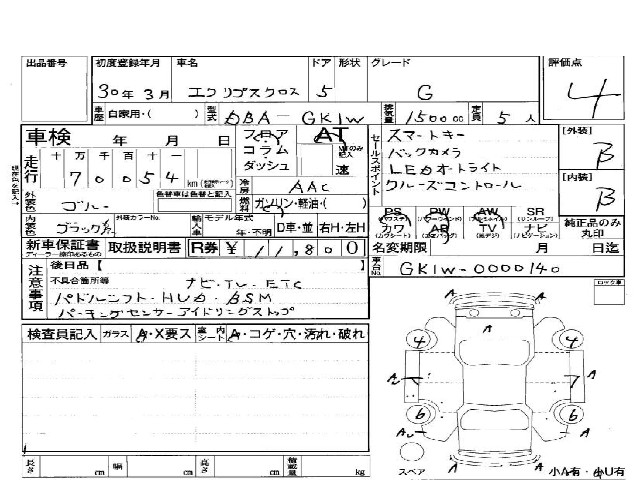 出品番号 初度登録年月 車名 ドア 形状 グレード 評価点
30年 3月 エクリプスクロス 5 G 4
車歴 自家用・( ) 型式 DBA-GK1W 排気量 1500cc 定員 5人
車検 年 月 日 フロア コラム ダッシュ AT 速
セールスポイント スマートキー
バックカメラ
LEDオートライト
クルーズコントロール
[外装] B
[内装] B
走行 十 万 千 百 十 一
70054 km
冷房 AAC
外装色 ブルー 色替車は色替と記入 燃料 ガソリン・軽油・( )
内装色 ブラック 外装カラーNo. 輸入車 モデル年式 年・不明 D車・並 右H・左H
PS PW AW SR
カワ AB TV ナビ 純正品のみ 丸印
新車保証書 取扱説明書 R券 ¥11,800 名変期限 月 日迄
ディーラー捺印あるもの
車台No. GK1W-0000140
注意事項 後日品【 】
不具合箇所等 ナビ・TV・ETC
パドルシフト・HUD・BSM
パーキングセンサーアイドリングストップ
ロック車
検査員記入 ガラス A・X要ス 室内シート A・コゲ・穴・汚れ・破れ
A A
4 4 A
A A
6 6
A A
スペア 小A有・小U有
長さ cm 幅 cm 高さ cm 積載量 kg